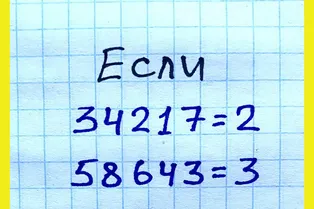 Если
34217=2
58643=3